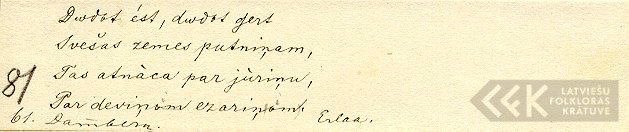 Dwdot ést, dwdot gert
Svešas zemes putniņam,
Tas atnāca par jūriņu,
Par deviņám ezariņám.
81
61. Dambern. Erlaa.
LATVIEŠU
FOLKLORAS
KRĀTUVE